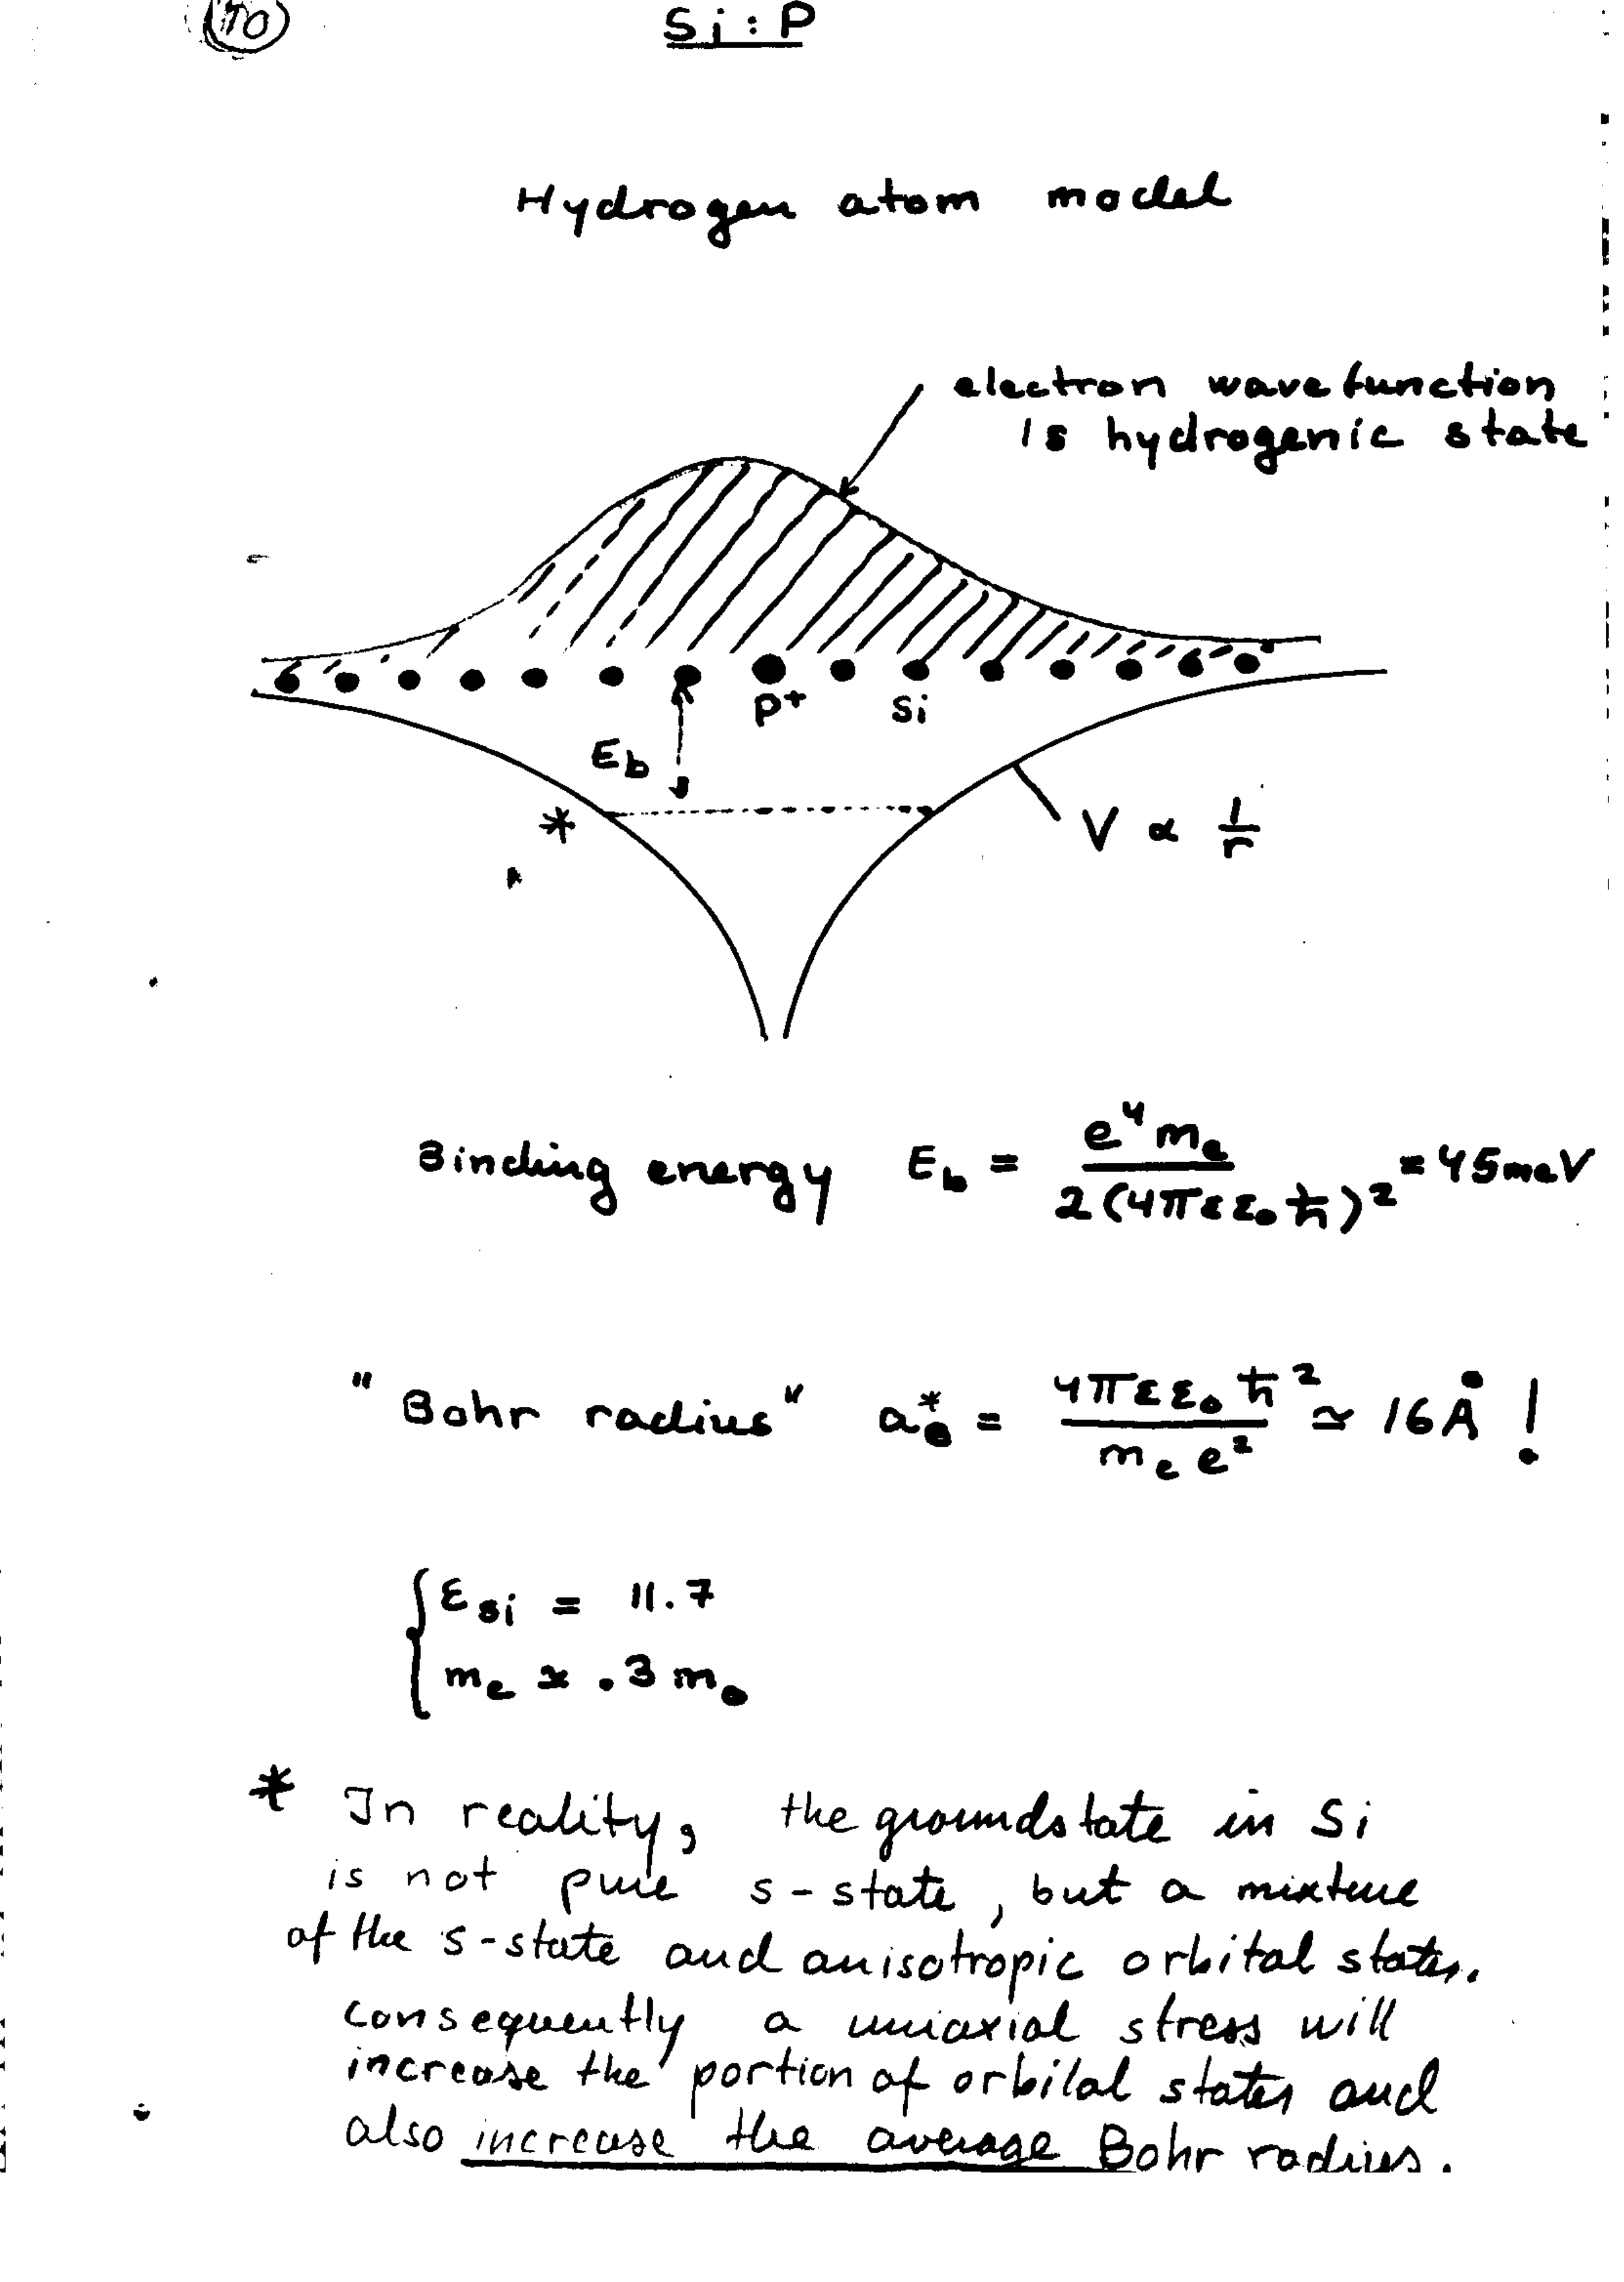 Si : P
Hydrogen atom model
electron wavefunction
1s hydrogenic state
P⁺ Si
E_b
*
V ∝ 1/r
Binding energy E_b = e⁴m_e / 2(4πεε₀ħ)² = 45meV
"Bohr radius" a*_B = 4πεε₀ħ² / m_e e² ≃ 16Å !
{ε_Si = 11.7
m_e ≃ .3 m₀
* In reality, the groundstate in Si
is not pure s-state, but a mixture
of the s-state and anisotropic orbital states.
consequently a uniaxial stress will
increase the portion of orbital states and
also increase the average Bohr radius.